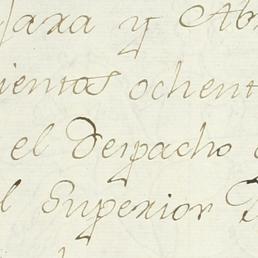 Jara y Ab
ientos ochent
el Despacho
l Superior D